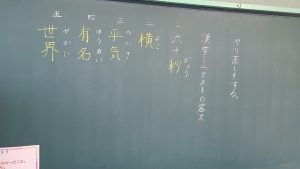 やり直しをする。
漢字ミニテストの答え
一 六十秒 びょう
二 横 よこ
三 平気 へいき
四 有名 ゆうめい
五 世界 せかい